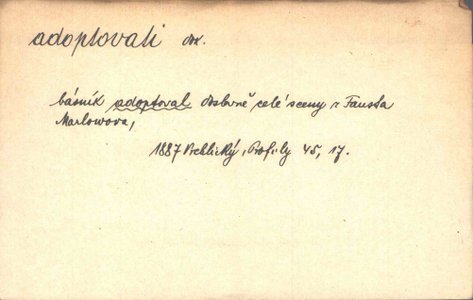 adoptovati dok.
básník adoptoval doslovně celé sceny z Fausta
Marlowova,
1887 Vrchlický, Profily 45, 17.